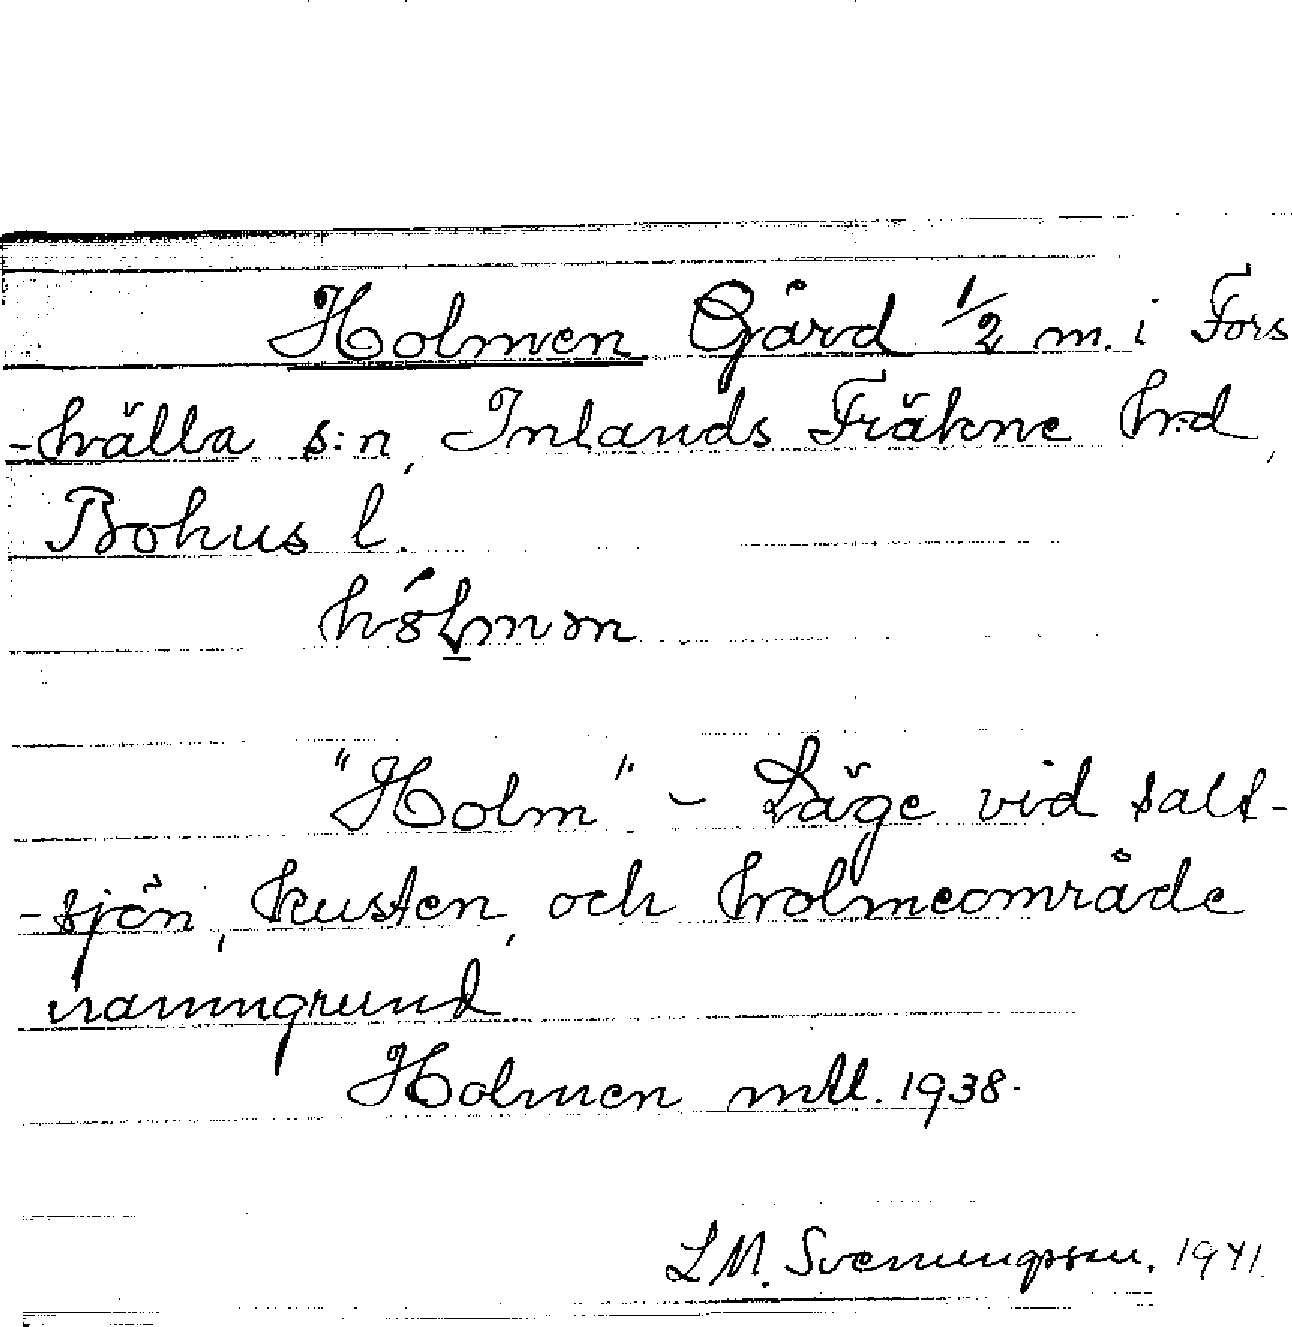 Holmen Gård 1/2 m. i Fors
-hälla s:n, Inlands Fräkne hrd,
Bohus l.
"Holm" - Läge vid salt-
-sjön, kusten, och holmeområde
namngrund
Holmen mtl. 1938.
L M. Svenungsson. 1941